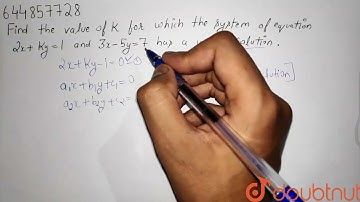 644857728
Find the value of K for which the system of equation
2x+Ky=1 and 3x-5y=7 has a solution.
2x+Ky-1=0
olution]
a₁x+b₁y+c₁=0
a₂x+b₂y+c₂=
doubtnut